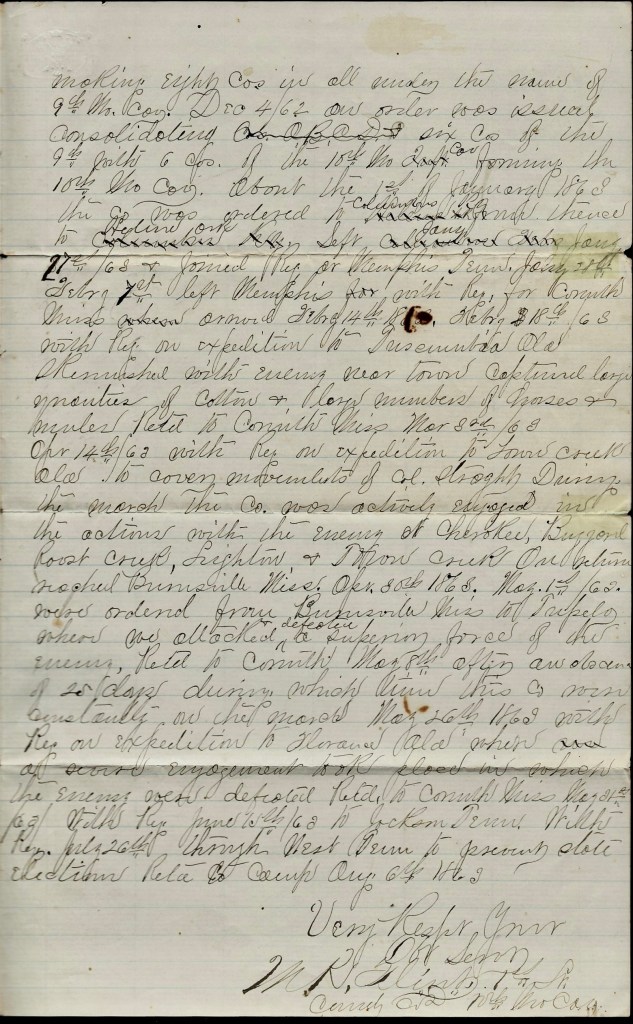 making eight Cos in all under the name of
9th Mo. Cav. Dec 4/62 an order was issued
consolidating six Co of the
9th with 6 Cos. of the 10th Mo Cav forming the
10th Mo Cav. About the 1st of January 1863
the Co was ordered to Columbus Ky thence
to left Jany
27th/63 & joined Reg at Memphis Tenn.
Febry 7st left Memphis with Reg. for Corinth
Miss arrived Febry 14th 1863. Febry 18th/63
with Reg on expedition to Tuscumbia Ala
Skermished with enemy near town captured large
quantities of Cotton & large numbers of horses &
mules Retd to Corinth Miss Mar 3rd/63
Apr 14th/63 with Reg on expedition to Town creek
Ala. to cover movements of Col. Straght During
the march the Co. was actively engaged in
the actions with the enemy at Cherokee, Buzzard
Roost creek, Leighton & Town creek On return
reached Burnsville Miss. Apr. 30th 1863. May. 1st/63.
were ordered from Burnsville Miss to Tupelo
where we attacked & defeated a superior force of the
enemy, Retd to Corinth May 8th after an absence
of 25 days during which time this Co were
constantly on the march May 26th 1863 with
Reg on expedition to Florance Ala where
a severe engagement took place in which
the enemy were defeated Retd. to Corinth Miss May 31st
/63 With Reg June /63 to Jackson Tenn. With
Reg. July 26th through West Tenn to prevent state
elections Retd to Camp Aug 6th 1863
Very Respt Your
Obt Servt
M. R. Flint 1st Lt
Comdg Co 10th Mo Cav.